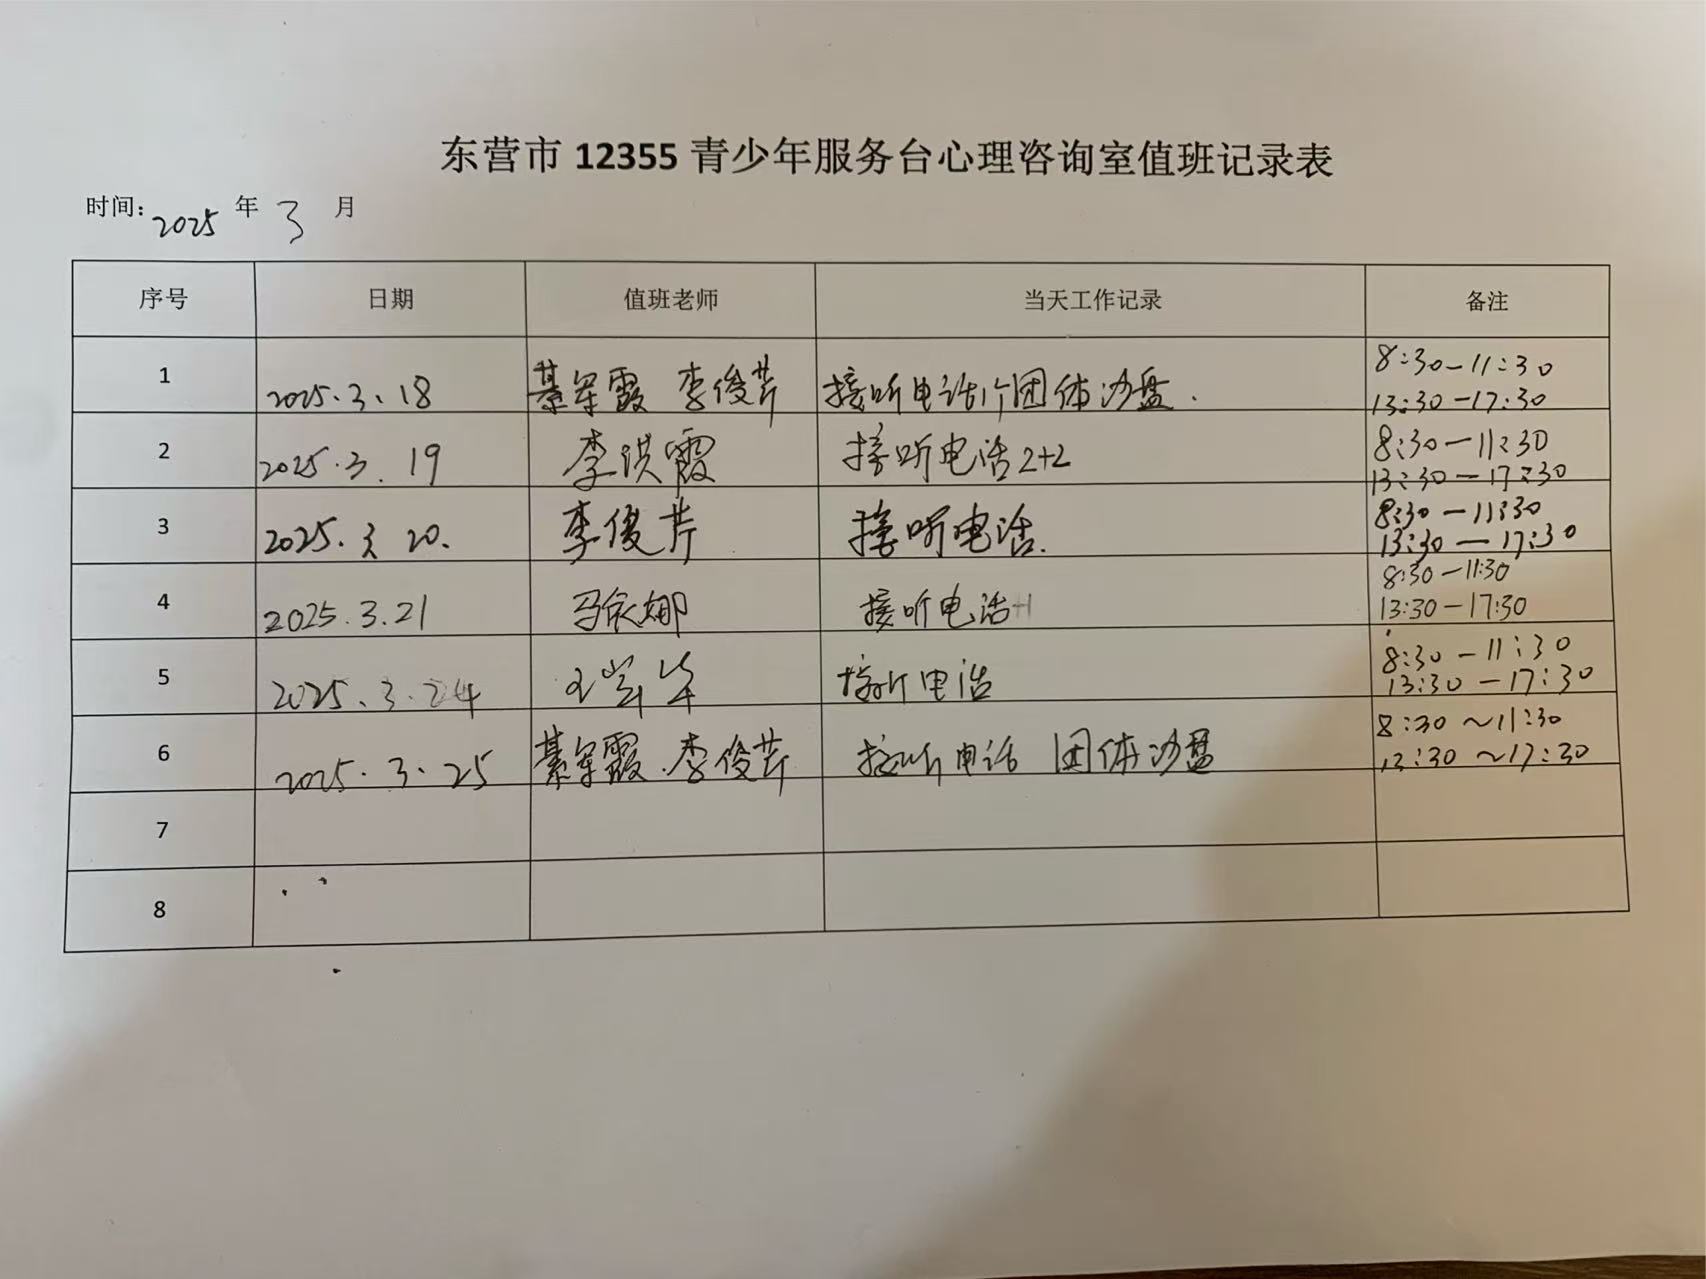 东营市 12355 青少年服务台心理咨询室值班记录表
时间: 2025 年 3 月
序号 日期 值班老师 当天工作记录 备注
1 2025.3.18 綦军霞 李俊芹 接听电话1个团体沙盘. 8:30-11:30
13:30-17:30
2 2025.3.19 李洪霞 接听电话2+2 8:30-11:30
13:30-17:30
3 2025.3 20. 李俊芹 接听电话. 8:30-11:30
13:30-17:30
4 2025.3.21 马依娜 接听电话+1 8:30-11:30
13:30-17:30
5 2025.3.24 接听电话 8:30-11:30
13:30-17:30
6 2025.3.25 綦军霞.李俊芹 接听电话 团体沙盘 8:30~11:30
13:30~17:30
7
8